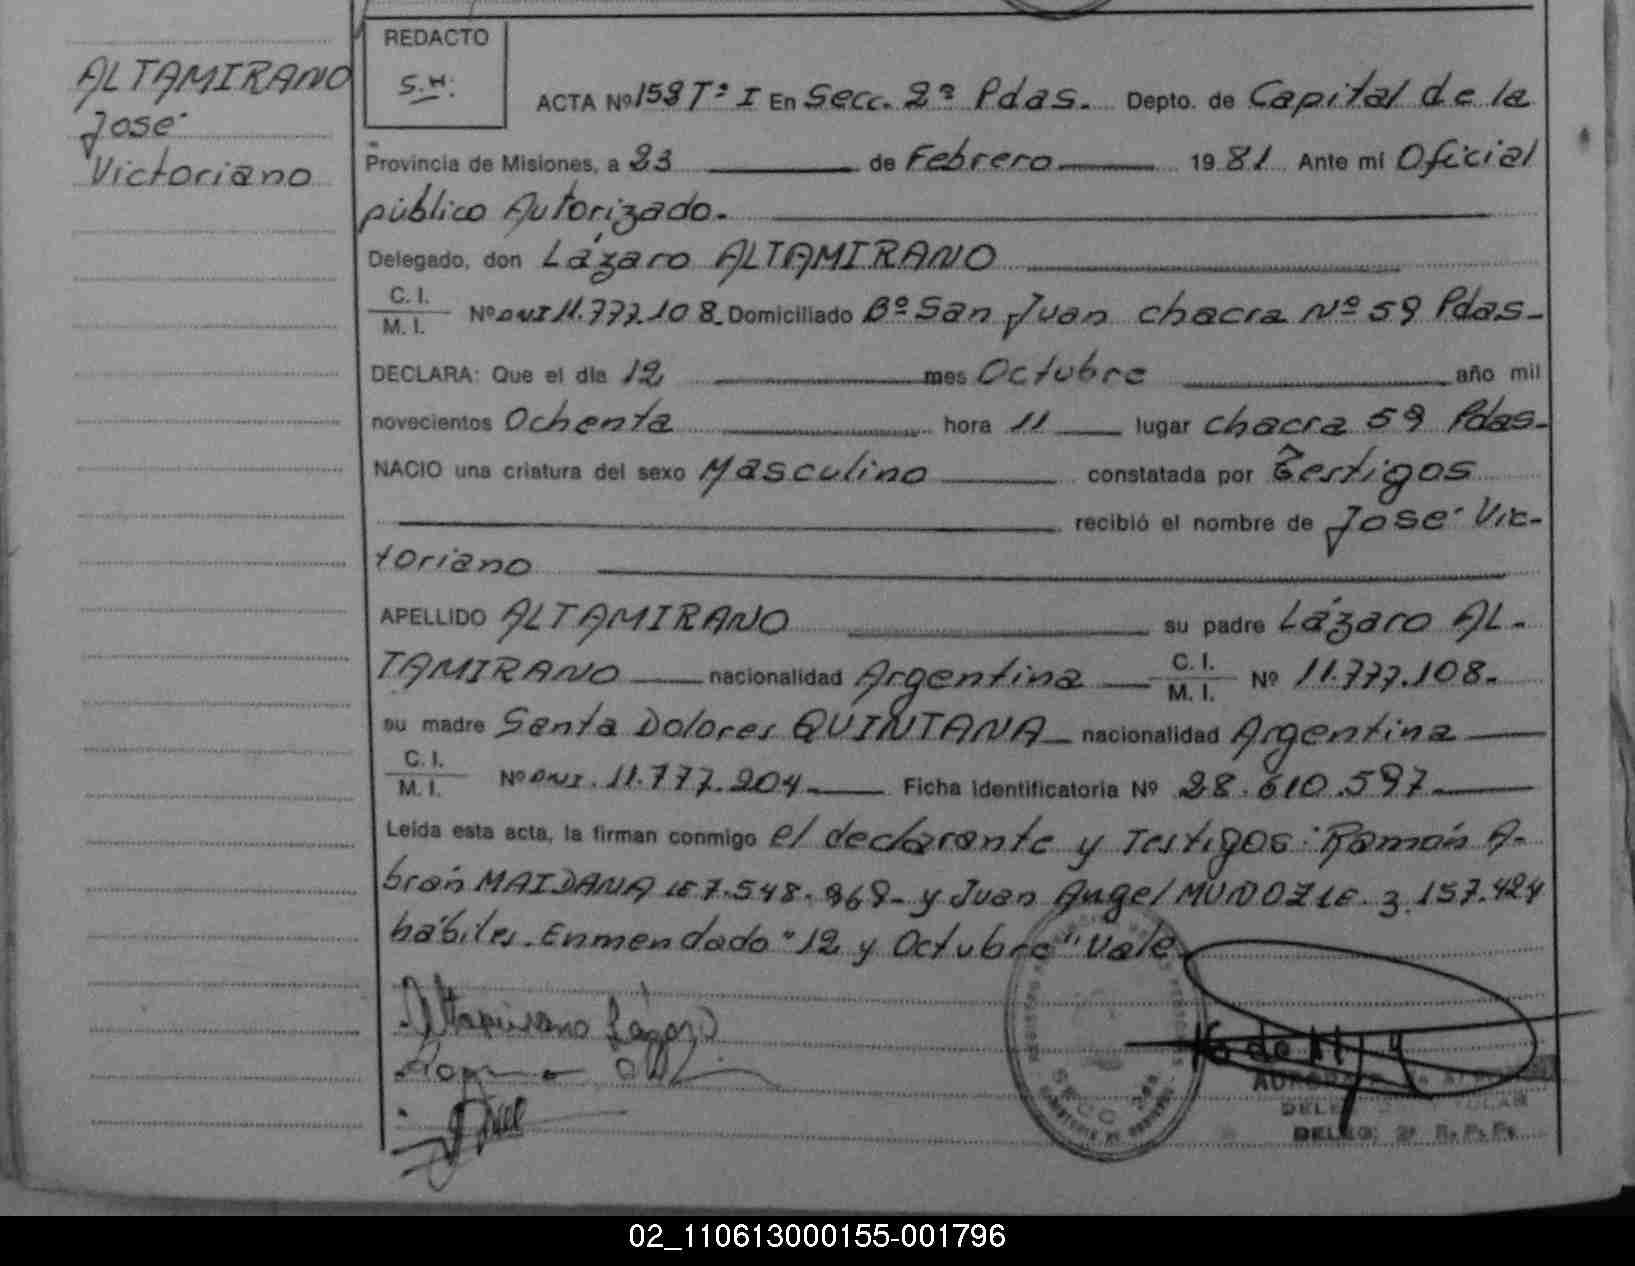 ALTAMIRANO
José
Victoriano
REDACTO
S.H.
ACTA Nº 159 Tº I En Secc. 2ª Pdas. Depto. de Capital de la
Provincia de Misiones, a 23 de Febrero 1981 Ante mí Oficial
público Autorizado.
Delegado, don Lázaro ALTAMIRANO
C. I.
M. I. Nº DNI 11.777.108. Domiciliado Bº San Juan chacra Nº 59 Pdas.
DECLARA: Que el día 12 mes Octubre año mil
novecientos Ochenta hora 11 lugar chacra 59 Pdas.
NACIO una criatura del sexo Masculino constatada por Testigos
recibió el nombre de José Vic-
toriano
APELLIDO ALTAMIRANO su padre Lázaro AL-
TAMIRANO nacionalidad Argentina C. I.
M. I. Nº 11.777.108.
su madre Santa Dolores QUINTANA nacionalidad Argentina
C. I.
M. I. Nº DNI. 11.777.204 Ficha identificatoria Nº 28.610.597
Leída esta acta, la firman conmigo el declarante y Testigos: Ramón A-
brán MAIDANA LE 7.548.969- y Juan Angel MUÑOZ LE. 3.157.424
hábiles. Enmendado "12 y Octubre" Vale
Altamirano Lázaro
SECC. 2da.
DELEG. 2ª R. P. Ps.
02_110613000155-001796